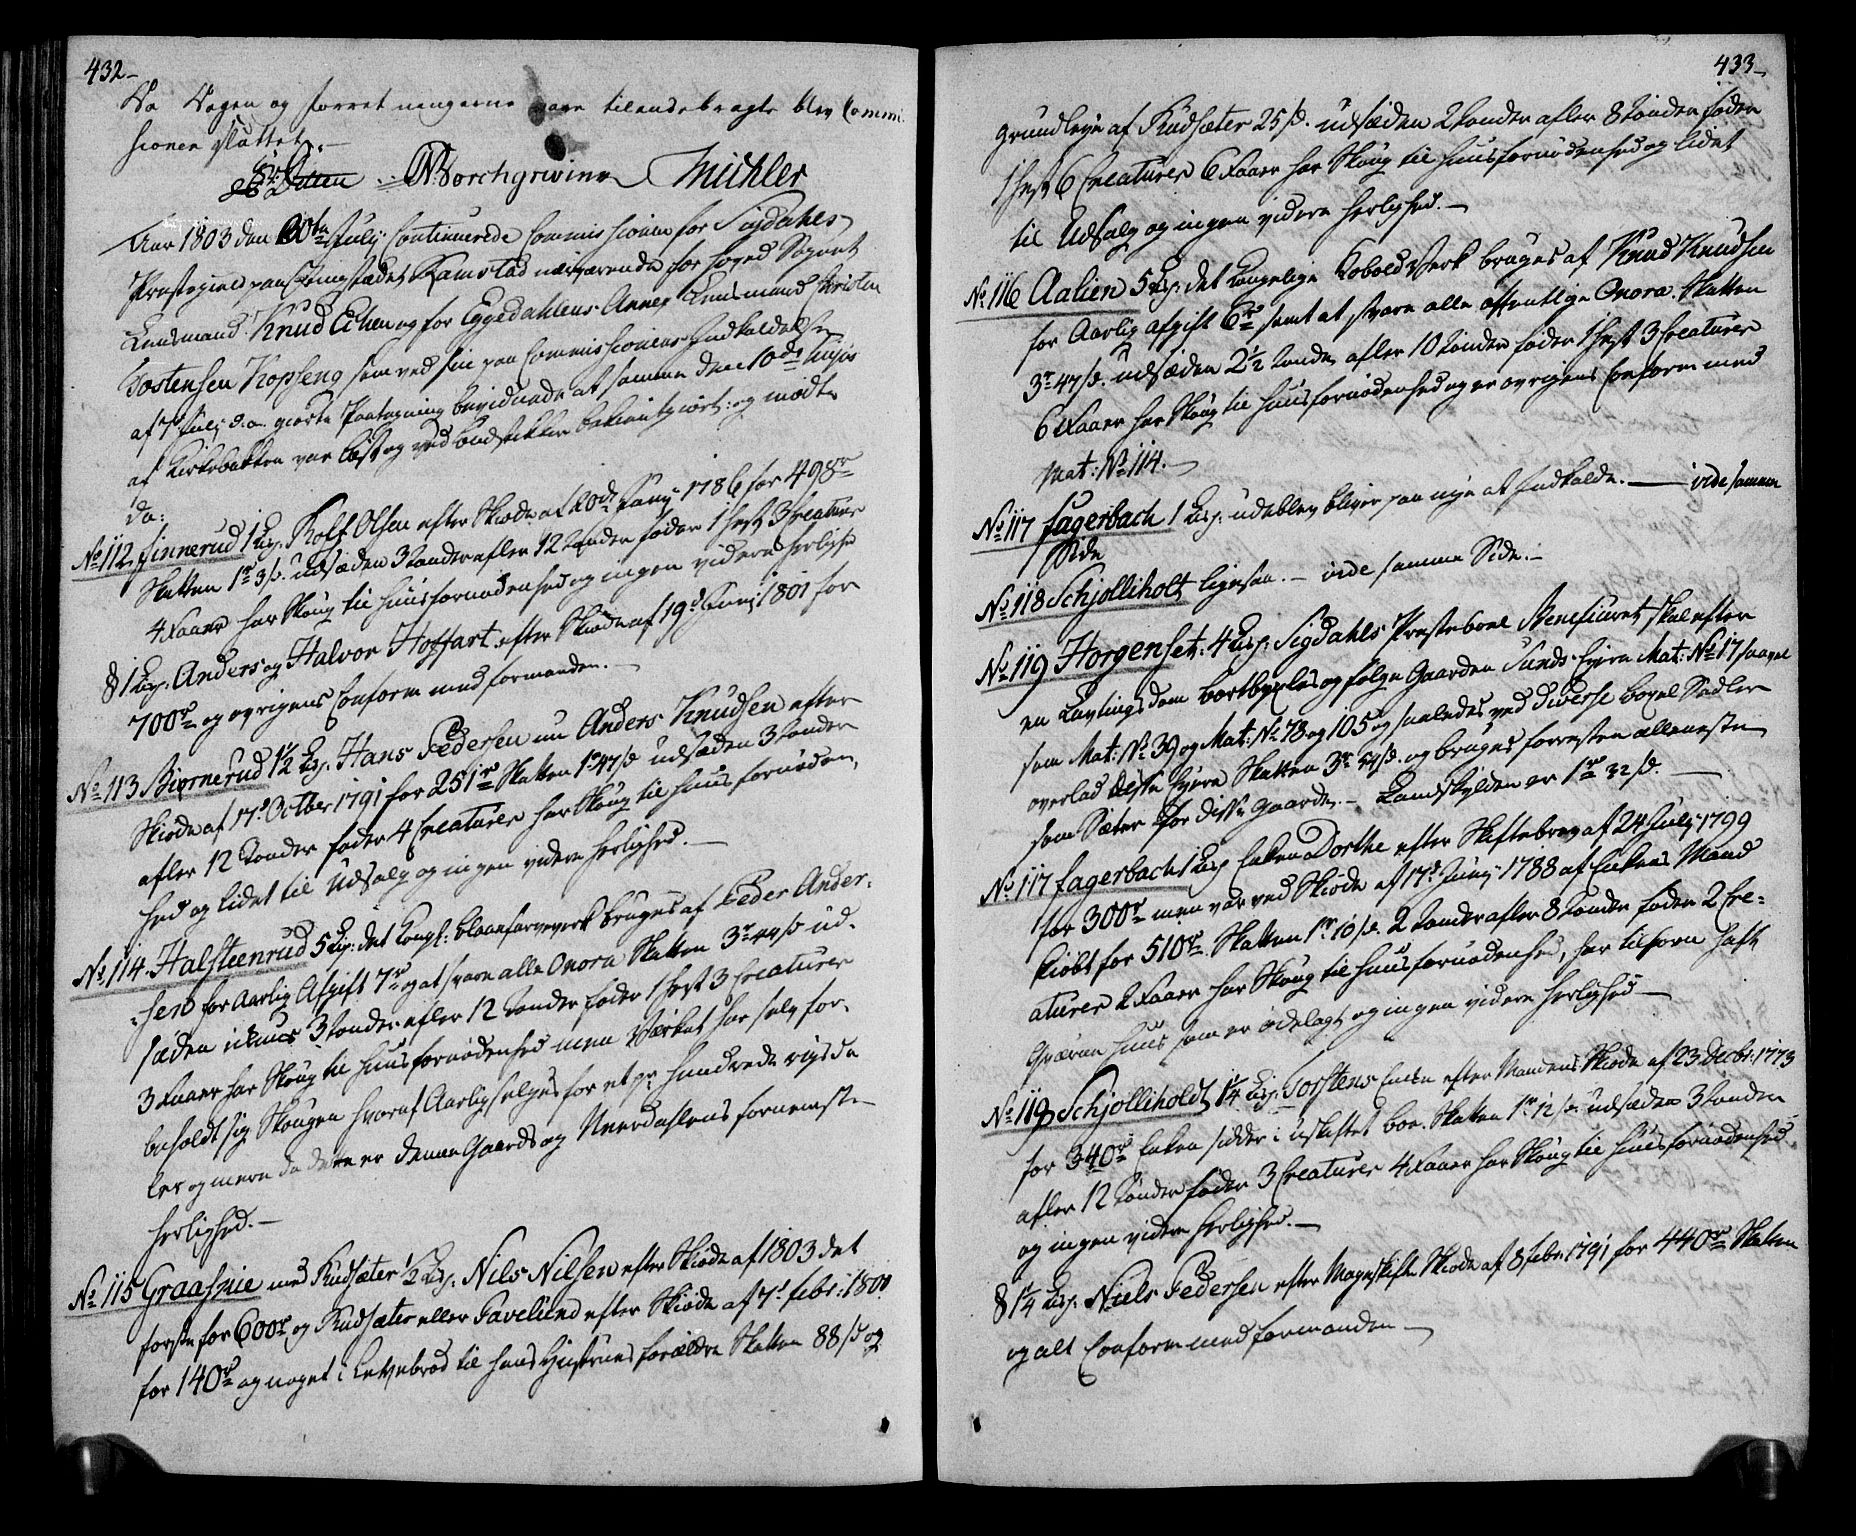 432
Da Dagen og forretningerne vare tilendebragte blev Commi-
sionen sluttet.
Borchgrivinn Michler
Aar 1803 den 20de July Continuerede Commissionen for Sigdahls
Præstegield paa Tingstædet Ramstad nærværende for hoved Sognet
Lensmand Knud Echen og for Eggedahlens Annex Lensmand Christen
Tostensen Kopseng som ved sin paa Commissionens Indkaldelse
af 7 July d. a. giorte Paategning bevidnede at samme den 10de huius
af Kirkebakken var læst og ved budstikken bekientgiort: og mødte
da:
No 112 Finnerud 1 Lisp. Rolf Olsen efter Skiøde af 20de Juny 1786 for 498r
Skatten 1r 3s. udsæden 3 Tønder afler 12 Tønder føder 1 Hest 3 Creaturer
4 Faaer har Skoug til huusfornødenhed og ingen videre herlighed
§ 1 Lisp. Anders og Halvor Hoffart efter Skiøde af 19d Juny 1801 for
700r og øvrigens Conform med formanden.
No 113 Biørnerud 1½ Lisp. Hans Pedersen nu Anders Knudsen efter
Skiøde af 17d October 1791 for 251r Skatten 1r 47s udsæden 3 Tønder
afler 12 Tønder føder 4 Creaturer har Skoug til huusfornøden-
hed og lidet til Udsalg og ingen videre herlighed.
No 114 Halsteenrud 5 Lisp: det Kongl: blaafarveverk bruges af Peder Ander-
sen for Aarlig Afgift 7r og at svare alle Onera Skatten 3r 44s ud-
sæden 3 Tønder afler 12 Tønder føder 1 Hest 3 Creaturer
3 Faaer har Skoug til huusfornødenhed men Værket har selv for-
beholdt sig Skougen hvoraf Aarlig selges for et pr hundrede rigsda-
ler og mere da dette er denne Gaards og Neerdahlens fornemste
herlighed.
No 115 Graafnie med Rudsæter ½ Lisp. Nils Nilsen efter Skiøde af 1803 det
første for 600r og Rudsæter eller Pavelund efter Skiøde af 7d febr: 1801
for 140r og noget i Levebrød til hans Hustrues forældre Skatten 88s og
433
grundleje af Rudsæter 25s. udsæden 2 Tønder afler 8 Tønder føder
1 Hest 6 Creaturer 6 Faaer har Skoug til huusfornødenhed og lidet
til Udsalg og ingen videre herlighed.
No 116 Aalien 5 Lisp: det Kongelige Kobold Verk bruges af Knud Knudsen
for Aarlig afgift 6r samt at svare alle offentlige Onera. Skatten
3r 47s. udsæden 2½ Tønde afler 10 Tønder føder 1 Hest 3 Creaturer
6 Faaer har Skoug til huusfornødenhed og er øvrigens Conform med
Mat: No 114.
No 117 Fagerbach 1 Lisp. udeblev bliver paa nye at Indkalde. — vide samme
Side
No 118 Schjølliholt ligesaa. — vide samme Side.
No 119 Horgenset: 4 Lisp. Sigdahls Præsteboel Beneficeret skal efter
en Lavtingsdom bortbygles og følge Gaarden Sunds Ejere Mat: No 17 saavel
som Mat: No 39 og Mat: No 78 og 105 og saaledes ved diverse bøxel Sedler
overlad disse Ejere Skatten 3r 44s. og bruges forresten alleneste
som Sæter for disse Gaarde. — Landskylden er 1r 32s.
No 117 Fagerbach 1 Lisp Enken Dorthe efter Skiftebrev af 24 July 1799
for 300r men var ved Skiøde af 17d Juny 1788 af Enkens Mand
kiøbt for 510r. Skatten 1r 10s. 2 Tønder afler 8 Tønder føder 2 Cre-
aturer 2 Faaer har Skoug til huusfornødenhed, har tilforn haft
Qværnehuus som er ødelagt og ingen videre herlighed
No 118 Schjølliholdt 1¼ Lisp. Torstens Enke efter Mandens Skiøde af 23 Decbr: 1773
for 340r Enken sidder i uskiftet boe. Skatten 1r 12s. udsæden 3 Tønder
afler 12 Tønder føder 3 Creaturer 4 Faaer har Skoug til huusfornødenhed
og ingen videre herlighed.
§ 1¼ Lisp. Niels Pedersen efter Mageskifte Skiøde af 8 febr: 1791 for 440r Skatten
og alt Conform med formanden